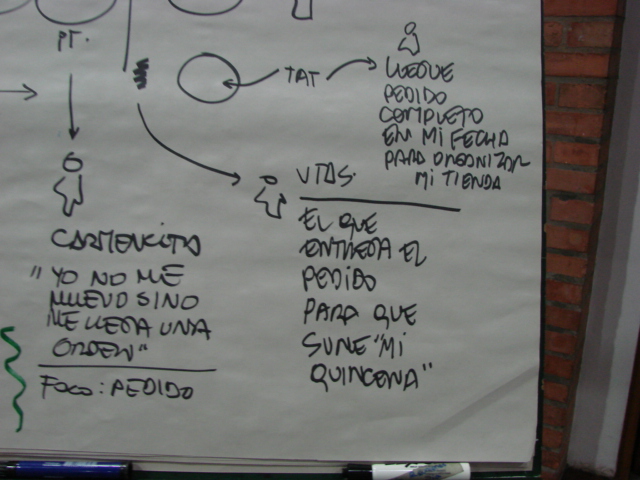 PT.
TAT
LLEGUE
PEDIDO
COMPLETO
EN MI FECHA
PARA ORGANIZAR
MI TIENDA
CARMENCITA
"YO NO ME
MUEVO SINO
ME LLEGA UNA
ORDEN"
FOCO: PEDIDO
VTAS.
EL QUE
ENTREGA EL
PEDIDO
PARA QUE
SUME "MI
QUINCENA"